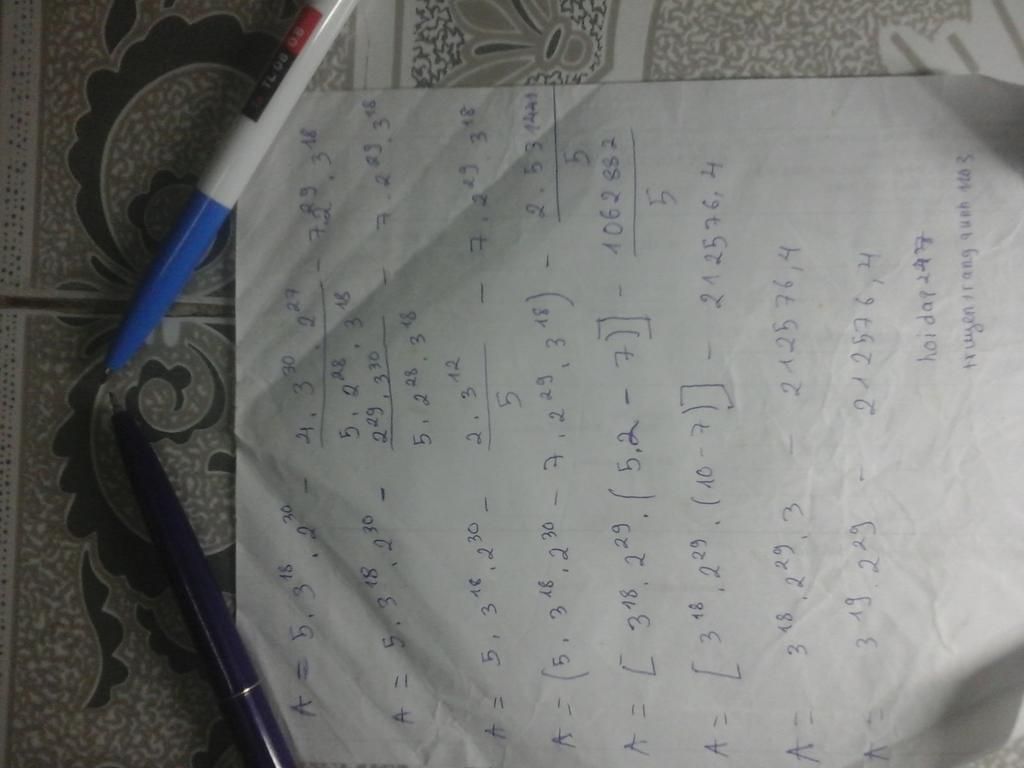 A = 5 . 3^18 . 2^30 - (4 . 3^30 . 2^27)/(5 . 2^28 . 3^18) - 7 . 2^29 . 3^18
A = 5 . 3^18 . 2^30 - (2^29 . 3^30)/(5 . 2^28 . 3^18) - 7 . 2^29 . 3^18
A = 5 . 3^18 . 2^30 - (2 . 3^12)/5 - 7 . 2^29 . 3^18
A = (5 . 3^18 . 2^30 - 7 . 2^29 . 3^18) - (2 . 531441)/5
A = [3^18 . 2^29 . (5.2 - 7)] - 1062882/5
A = [3^18 . 2^29 . (10 - 7)] - 212576,4
A = 3^18 . 2^29 . 3 - 212576,4
A = 3^19 . 2^29 - 212576,4
hoidap247